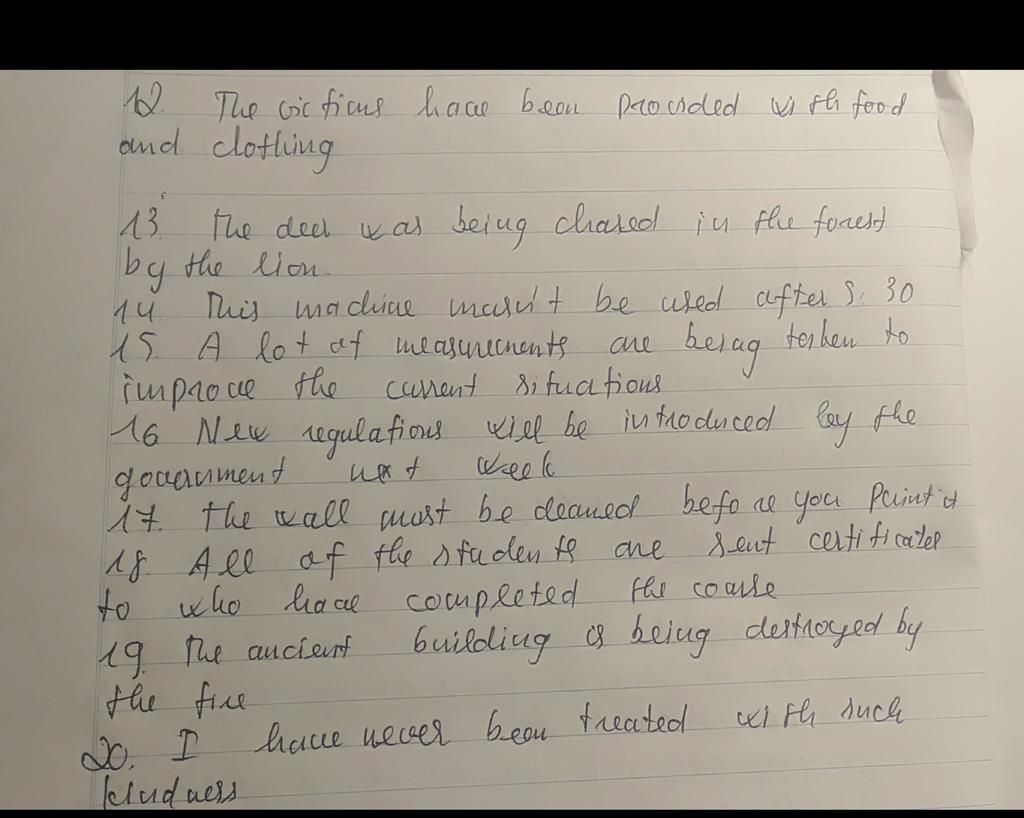 12. The victims have been provided with food
and clothing
13. The deer was being chased in the forest
by the lion.
14. This machine mustn't be used after 5:30
15. A lot of measurements are being taken to
improve the current situations
16 New regulations will be introduced by the
government next week
17. The wall must be cleaned before you paint it
18. All of the students are sent certificates
to who have completed the course
19. The ancient building is being destroyed by
the fire
20. I have never been treated with such
kindness